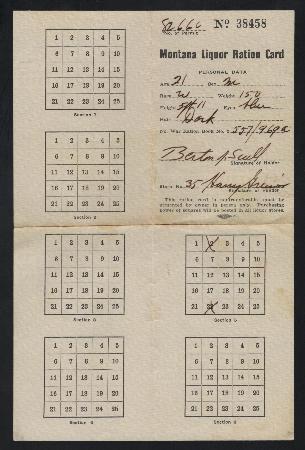 82660 Nº 38458
No. of Permit
Montana Liquor Ration Card
PERSONAL DATA
Age 21 Sex M
Race W Weight 150
Height 5ft 11 Eyes blue
Hair Dark
No. War Ration Book No. 1
Signature of Holder
Store No. 35
Signature of Vendor
This ration card is nontransferable must be
presented by owner in person only. Purchasing
power of squares will be posted in all liquor stores.
1 2 3 4 5
6 7 8 9 10
11 12 13 14 15
16 17 18 19 20
21 22 23 24 25
Section 1
1 2 3 4 5
6 7 8 9 10
11 12 13 14 15
16 17 18 19 20
21 22 23 24 25
Section 2
1 2 3 4 5
6 7 8 9 10
11 12 13 14 15
16 17 18 19 20
21 22 23 24 25
Section 3
1 2 3 4 5
6 7 8 9 10
11 12 13 14 15
16 17 18 19 20
21 22 23 24 25
Section 5
1 2 3 4 5
6 7 8 9 10
11 12 13 14 15
16 17 18 19 20
21 22 23 24 25
Section 4
1 2 3 4 5
6 7 8 9 10
11 12 13 14 15
16 17 18 19 20
21 22 23 24 25
Section 6